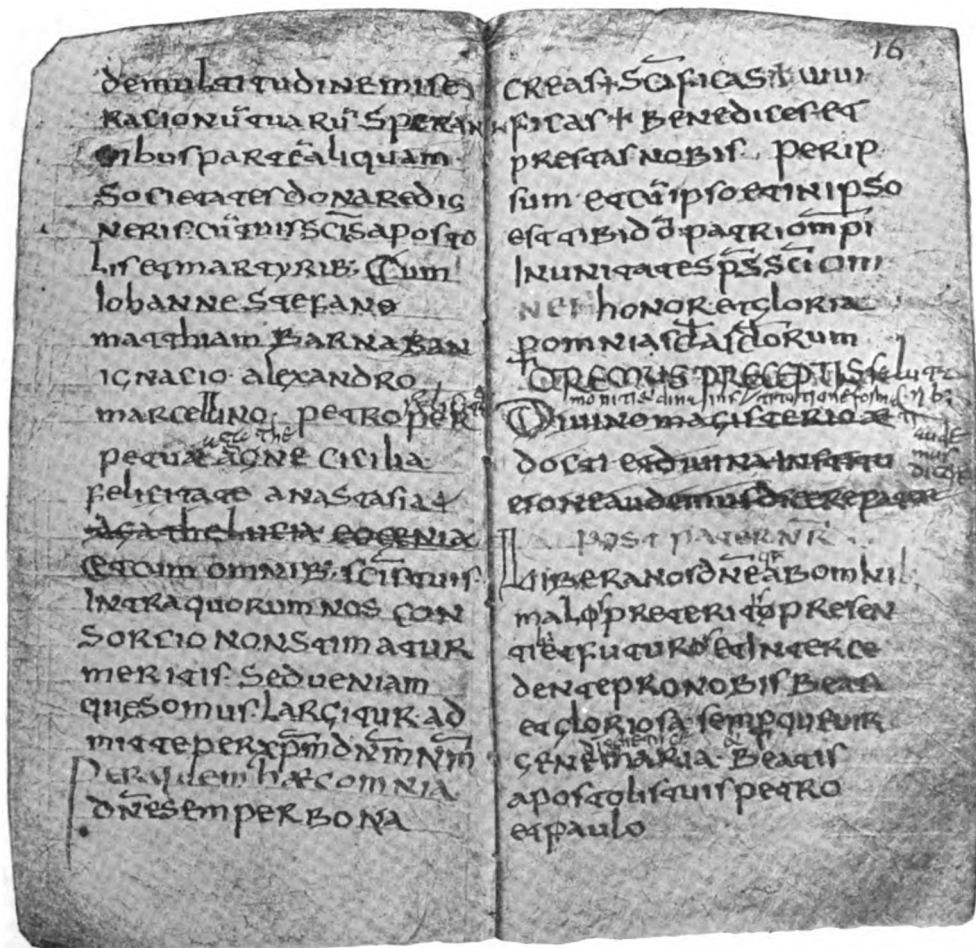 demultitudinemise
racionū tuarū speran
tibus partēaliquam
Societates donaredig
neris. cū tuis sc̄is aposto
lis etmartyrib; Cum
Iohanne Stefano
matthiam Barnaban
ignacio alexandro
marcellino petro per
petuae agne cicilia
felicitate anastasia et
agathe lucia eogenia
Etcum omnib; sc̄istuis
Intraquorum nos con
sorcio nonstimatur
meritis. Sedueniam
quęsomus Largitur. ad
mitte per xp̄m dn̄m nr̄m
Per quem haec omnia
dn̄e semper bona
16
creas + sc̄ificas + uiui
ficas + Benedices et
prestas nobis. per ip
sum etcū ipso etinipso
esttibi dō patri om̄pi
Inunitate sp̄s sc̄i om
nis honor et gloria
p omnia sc̄la sc̄lorum
OREMUS PRECEPTIS salut
Diuino magisterio
docti et diuina institu
tione audemus dicere pater
post pater nr̄
Libera nos dn̄e ab omni
malo preterito presen
ti et futuro et Interce
dente pro nobis Beata
et gloriosa semp que uir
gene maria. Beatis
apostolis tuis petro
et paulo